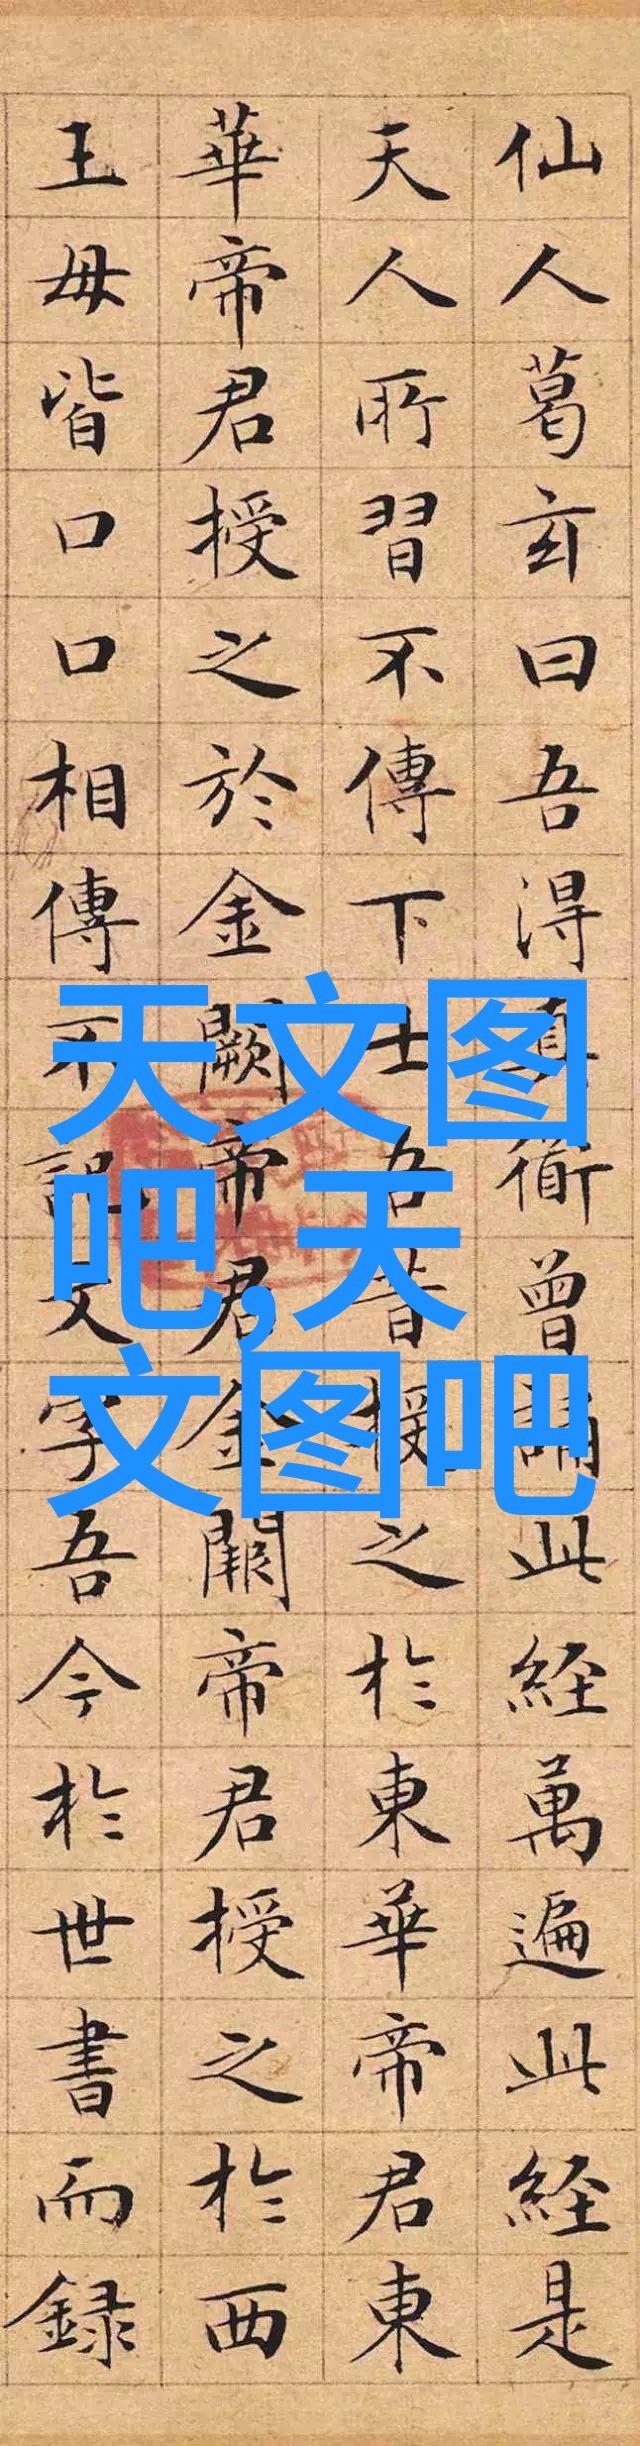 仙人葛玄曰吾淂真衜曾誦此経萬遍此経是
天人所習不傳下士吾昔授之於東華帝君東
華帝君授之於金闕帝君金闕帝君授之於西
王母皆口口相傳不記文字吾今於世書而録
天文图
吧,天
文图吧